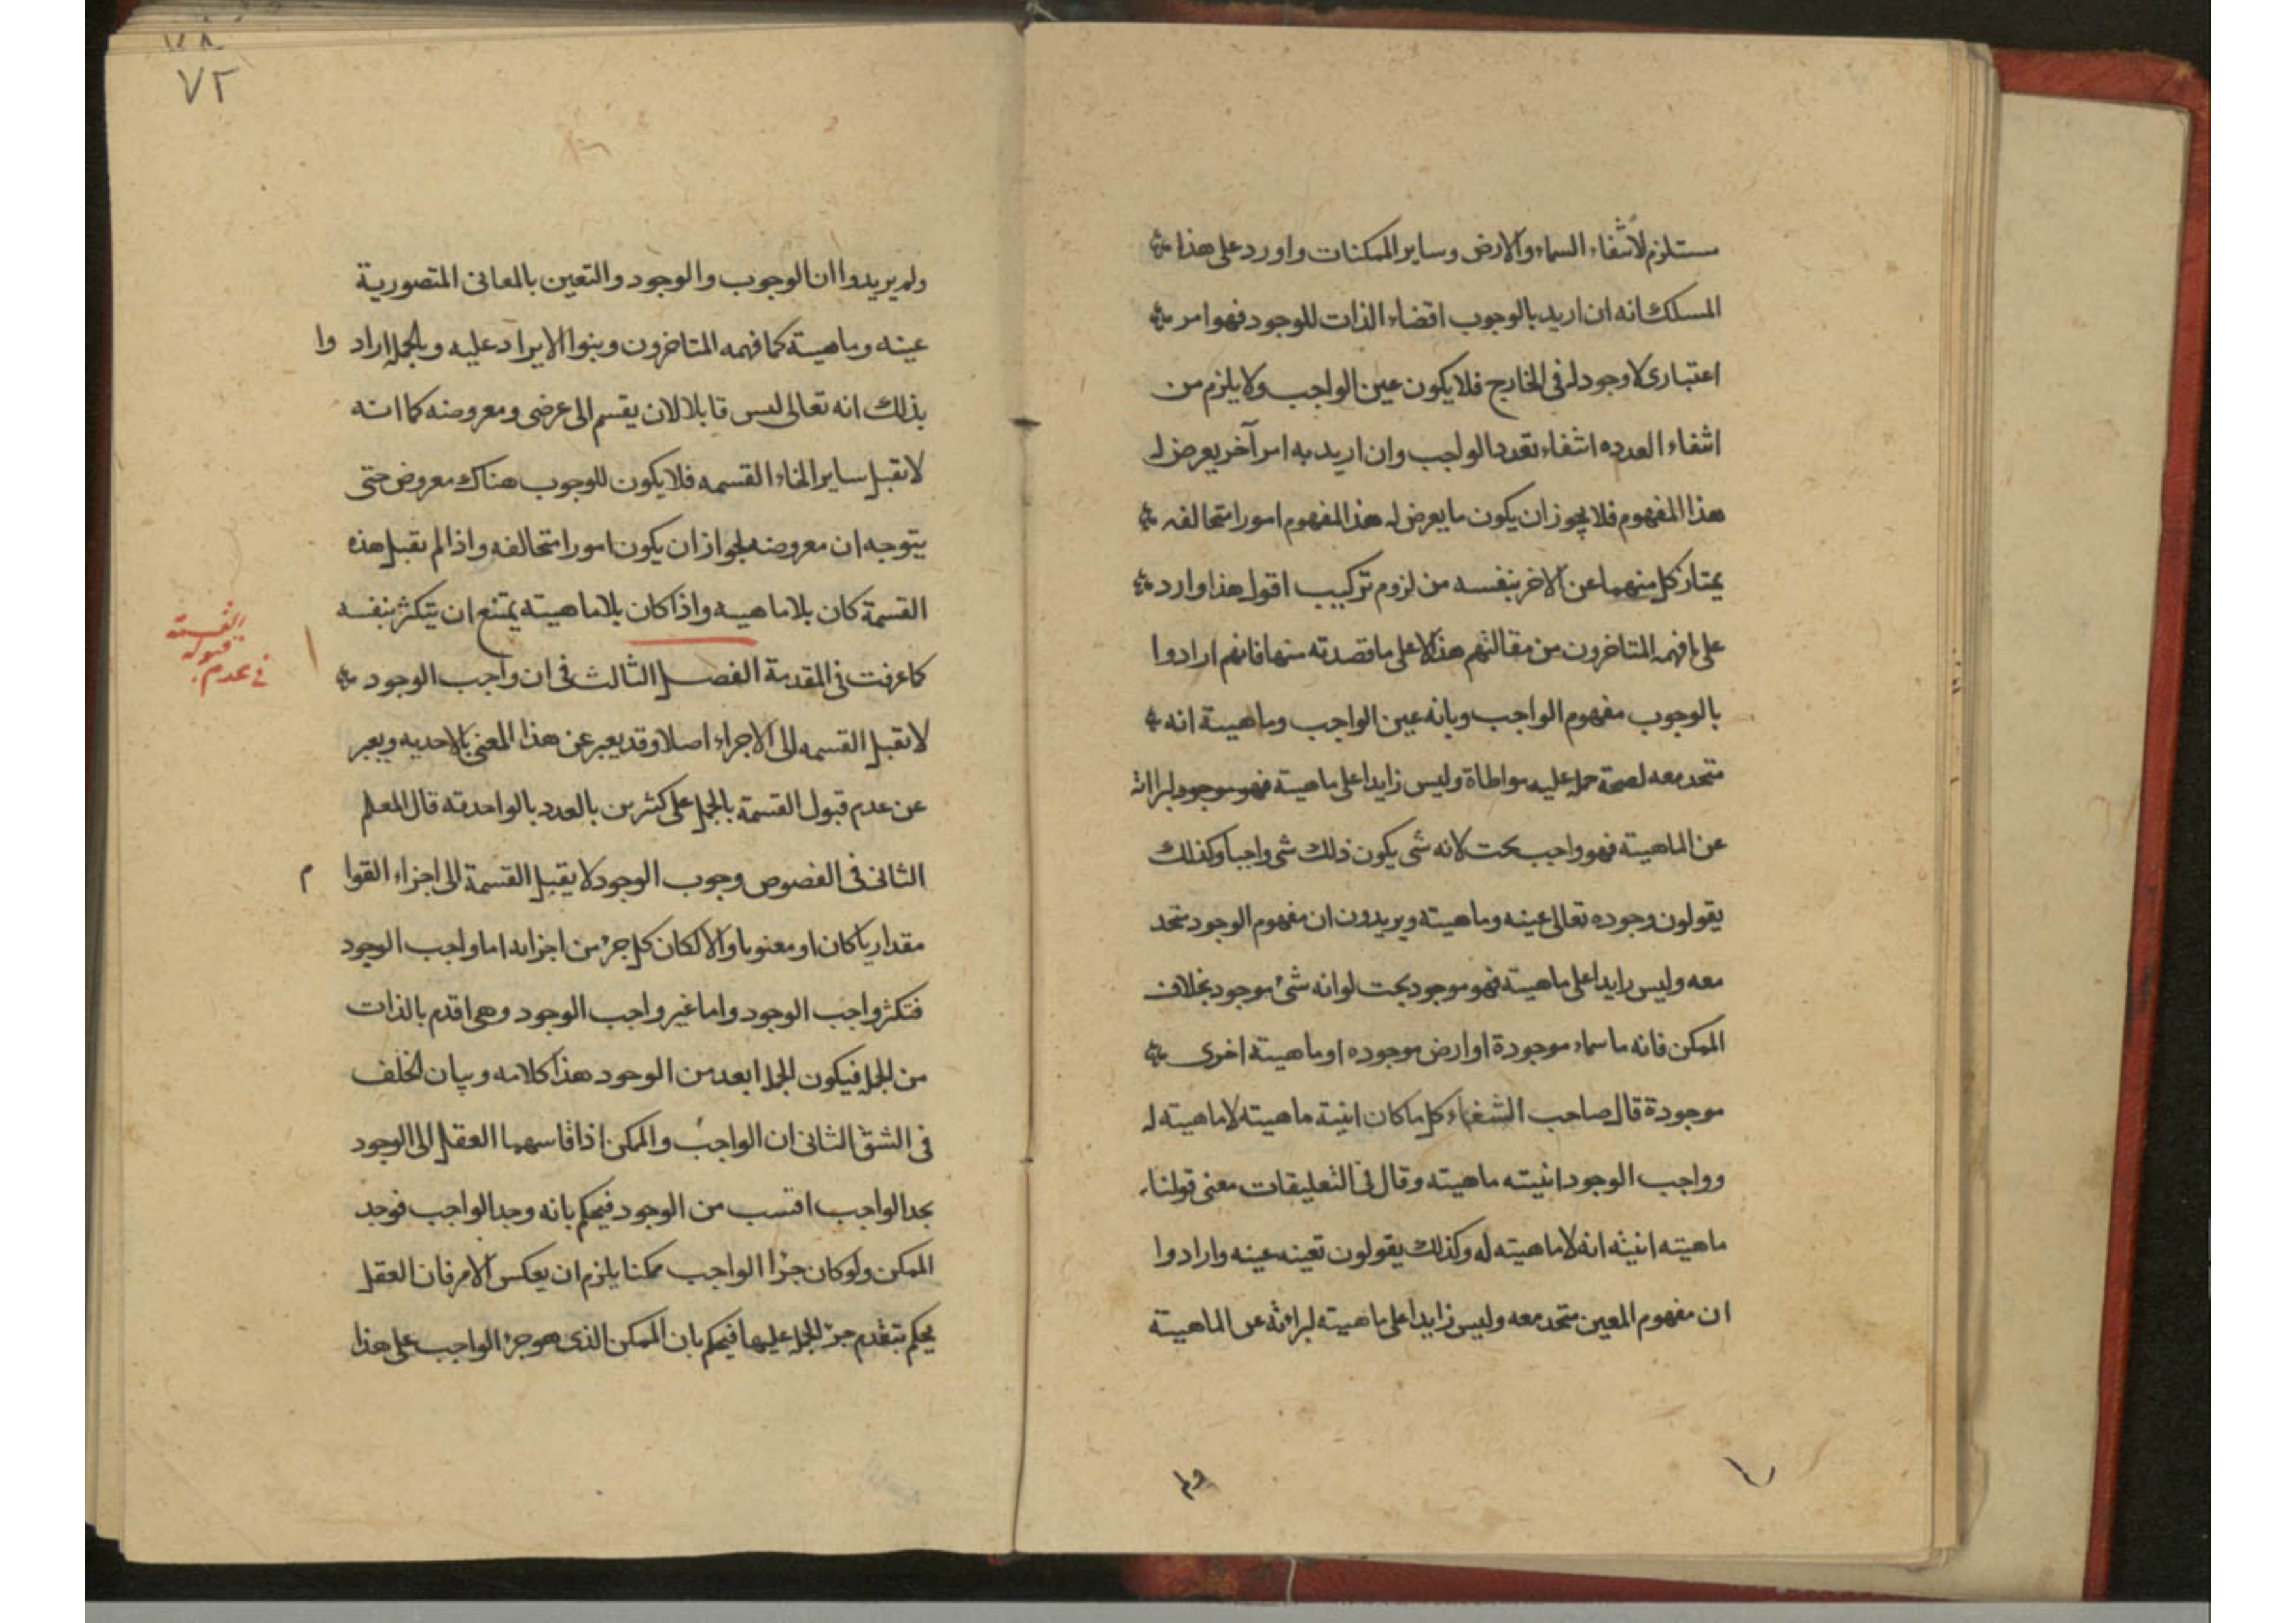 مستلزم لانتفاء السماء والارض وساير الممكنات واورد على هذا
المسلك انه ان اريد بالوجوب اقضاء الذات للوجود فهو امر
اعتبارى لا وجود له فى الخارج فلا يكون عين الواجب ولا يلزم من
انتفاء العدده انتفاء تعدد الواجب وان اريد به امر آخر يعرض له
هذا المفهوم فلا يجوز ان يكون ما يعرض له هذ المفهوم امورا متخالفه
يمتاز كل منهما عن الاخر بنفسه من لزوم تركيب اقول هذا وارد
على ما فهمه المتاخرون من مقالتهم هذه لا على ما قصدته منها فانهم ارادوا
بالوجوب مفهوم الواجب وبانه عين الواجب وماهيته انه
متحد معه لصحة حمله عليه مواطاة وليس زايدا على ماهيته فهو موجود لبراته
عن الماهيته فهو واجب بحت لانه شى يكون ذلك شى واجبا وكذلك
يقولون وجوده تعالى عينه وماهيته ويريدون ان مفهوم الوجود متحد
معه وليس زايدا على ماهيته فهو موجود بحت لوانه شئ موجود بخلاف
الممكن فانه ما سماء موجودة او ارض موجوده او ماهيته اخرى
موجودة قال صاحب الشفاء كل ما كان انيته ماهيته لا ماهيته له
وواجب الوجود انيته ماهيته وقال فى التعليقات معنى قولنا
ماهيته انيته انه لا ماهيته له وكذلك يقولون تعينه عينه وارادوا
ان مفهوم المعين متحد معه وليس زايدا على ماهيته لبراءته عن الماهيته
ولم
٧٢
ولم يريدوا ان الوجوب والوجود والتعين بالمعانى المتصورية
عينه وماهيته كما فهمه المتاخرون وبنوا الايراد عليه وبالجمله اراد وا
بذلك انه تعالى ليس قابلا لان يقسم الى عرضى ومعروضه كما انه
لا تقبل ساير انحاء القسمه فلا يكون للوجوب هناك معروض حتى
يتوجه ان معروضه لجواز ان يكون امورا متخالفه واذا لم تقبل هذه
القسمة كان بلا ماهيه واذا كان بلا ماهيته يمتنع ان يتكثر بنفسه
كما عرفت فى المقدمة الفصل الثالث فى ان واجب الوجود
فى عدم قبوله القسمته
لا تقبل القسمه الى الاجزاء اصلا وقد يعبر عن هذا المعنى بالاحديه ويعبر
عن عدم قبول القسمة بالحمل على كثيرين بالعدد بالواحديته قال المعلم
الثانى فى الفصوص وجوب الوجود لا يقبل القسمة الى اجزاء القوا م
مقداريا كان او معنويا والا لكان كل جزء من اجزايه اما واجب الوجود
فتكثر واجب الوجود واما غير واجب الوجود وهى اقدم بالذات
من الجمله فيكون الجمله ابعد من الوجود هذا كلامه وبيان الخلف
فى الشق الثانى ان الواجب والممكن اذا قاسهما العقل الى الوجود
يجد الواجب اقتسب من الوجود فيحكم بانه وجد الواجب فوجد
الممكن ولو كان جزا الواجب ممكنا يلزم ان يعكس الامر فان العقل
يحكم بتقدم جزء الجمله عليها فيحكم بان الممكن الذى هو جزء الواجب على هذا